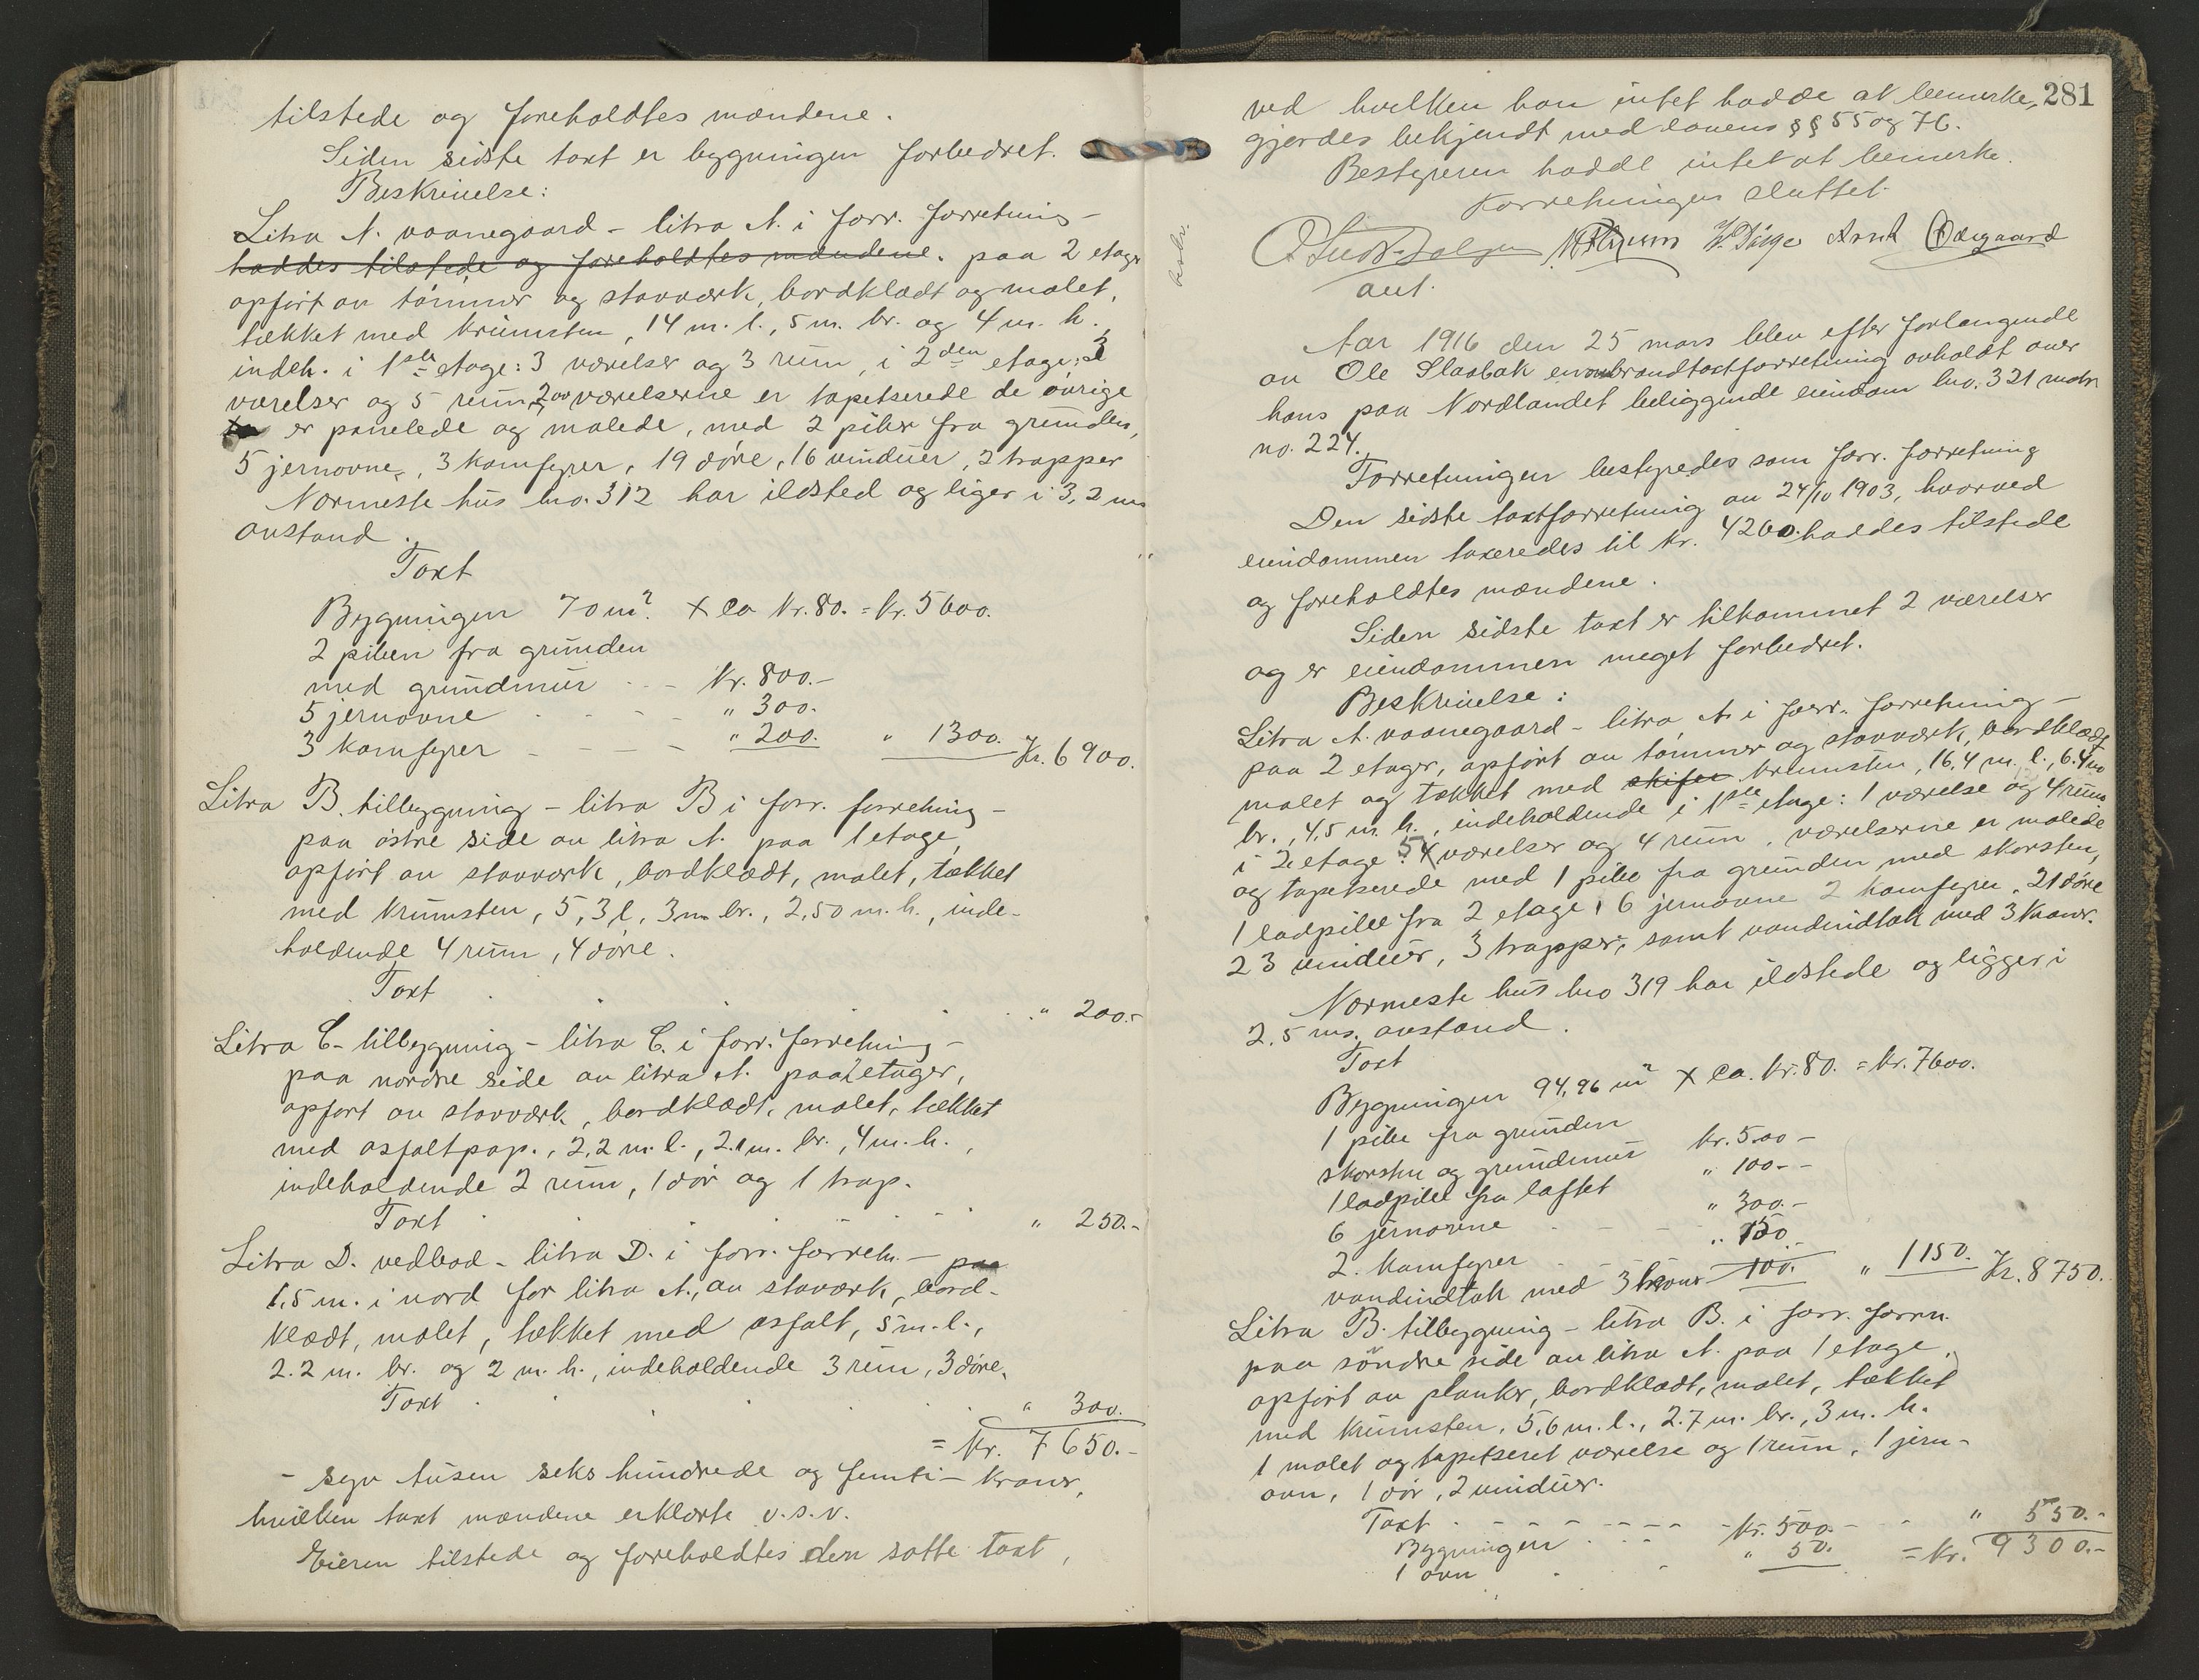 tilstede og foreholdtes mændene.
Siden sidste taxt er bygningen forbedret.
Beskrivelse:
Litra A. vaanegaard - litra A. i forr. forretning -
haddes tilstede og foreholdtes mændene. paa 2 etager
opført av tømmer og stavværk, bordklædt og malet,
tækket med krumsten, 14 m. l., 5 m. br. og 4 m. h.,
indeh. i 1ste etage: 3 værelser og 3 rum, i 2den etage: 3
værelser og 5 rum, 2 av værelserne er tapetserede de øvrige
er panelede og malede, med 2 piber fra grunden,
5 jernovne, 3 komfyrer, 19 døre, 16 vinduer, 2 trapper
Nærmeste hus bno. 312 har ildsted og liger i 3,2 ms
avstand.
Taxt
Bygningen 70 m2. x ca kr. 80. = kr. 5600.
2 piben fra grunden
med grundmur - - kr. 800.-
5 jernovne - - - - " 300.
3 komfyrer - - - - " 200. " 1300. Kr. 6900.
Litra B. tilbygning - litra B i forr. forretning -
paa østre side av litra A. paa 1 etage,
opført av stavværk, bordklædt, malet, tækket
med krumsten, 5,3 l, 3 m br., 2,50 m. h., inde-
holdende 4 rum, 4 døre.
Taxt . . . . " 200.-
Litra C - tilbygning - litra C. i forr. forretning -
paa nordre side av litra A. paa 2 etager,
opført av stavværk, bordklædt, malet, tækket
med asfaltpap., 2,2 m. l., 2.1 m. br., 4 m. h.,
indeholdende 2 rum, 1 dør og 1 trap.
Taxt . . . . " 250.-
Litra D. vedbod - litra D. i forr. forretn. - paa
1,5 m. i nord for litra A., av staværk, bord-
klædt, malet, tækket med asfalt, 5 m. l.,
2.2 m. br. og 2 m. h., indeholdende 3 rum, 3 døre.
Taxt . . . . " 300.
= Kr. 7650.-
- syv tusen seks hundrede og femti - kroner,
hvilken taxt mændene erklærte o.s.v.
Eieren tilstede og foreholdtes den satte taxt,
281
ved hvilken han intet hadde at bemerke,
gjordes bekjendt med lovens §§ 55 og 76.
Bestyreren hadde intet at bemerke.
Forretningen sluttet.
Arnt Ødegaard
aut.
Aar 1916 den 25 mars blev efter forlangende
av Ole Slatbak en ombrandtaxtforretning avholdt over
hans paa Nordlandet beliggende eiendom bno. 321 matr.
no. 224.
Forretningen bestyredes som forr. forretning
Den sidste taxtforretning av 24/10 1903, hvorved
eiendommen taxeredes til kr. 4200. haddes tilstede
og foreholdtes mændene.
Siden sidste taxt er tilkommet 2 værelser
og er eiendommen meget forbedret.
Beskrivelse:
Litra A. vaanegaard - litra A. i forr. forretning -
paa 2 etager, opført av tømmer og stavværk, bordklædt
malet og tækket med skifer krumsten, 16,4 m. l., 6.4 m
br., 4,5 m. h., indeholdende i 1ste etage: 1 værelse og 4 rum
i 2 etage: 5 værelser og 4 rum, værelserne er malede
og tapetserede med 1 pibe fra grunden med skorsten,
1 ladpibe fra 2 etage, 6 jernovne 2 komfyrer, 21 døre
23 vinduer, 3 trapper, samt vandindtak med 3 kraner.
Nærmeste hus bno 319 har ildstede og ligger i
2.5 ms. avstand.
Taxt
Bygningen 94,96 m2 x ca. kr. 80. = kr. 7600.
1 pibe fra grunden
skorsten og grundmur kr. 500 -
1 ladpibe fra loftet " 100 - -
6 jernovne - - - " 300.-
2. komfyrer - - - " 150.-
vandindtak med 3 kraner 100. " 1150. Kr. 8750.
Litra B. tilbygning - litra B. i forr. forrn.
paa søndre side av litra A. paa 1 etage,
opført av planker, bordklædt, malet, tækket
med krumsten, 5,6 m. l., 2.7 m. br., 3 m. h.
1 malet og tapetseret værelse og 1 rum, 1 jern-
ovn, 1 dør, 2 vinduer.
Taxt - - - - - - - " 550.-
Bygningen . - - kr. 500.-
1 ovn . . " 50. = kr. 9300.-